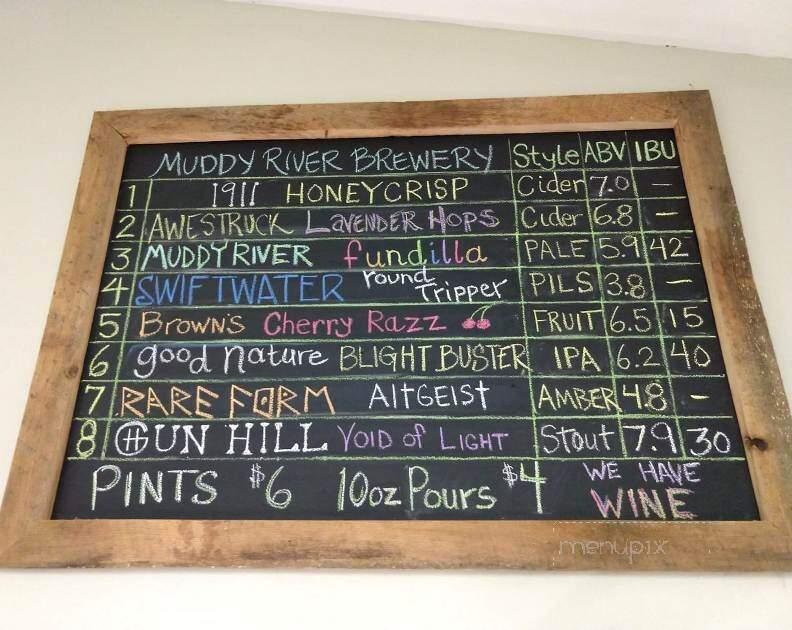 MUDDY RIVER BREWERY Style ABV IBU
1 1911 HONEYCRISP Cider 7.0 –
2 AWESTRUCK LAVENDER HOPS Cider 6.8 –
3 MUDDY RIVER fundilla PALE 5.9 42
4 SWIFTWATER round Tripper PILS 3.8 –
5 BROWN'S Cherry Razz FRUIT 6.5 15
6 good nature BLIGHT BUSTER IPA 6.2 40
7 RARE FORM AltGEISt AMBER 48 –
8 GUN HILL VOID of LIGHT Stout 7.9 30
PINTS $6 10oz Pours $4 WE HAVE WINE
menupix